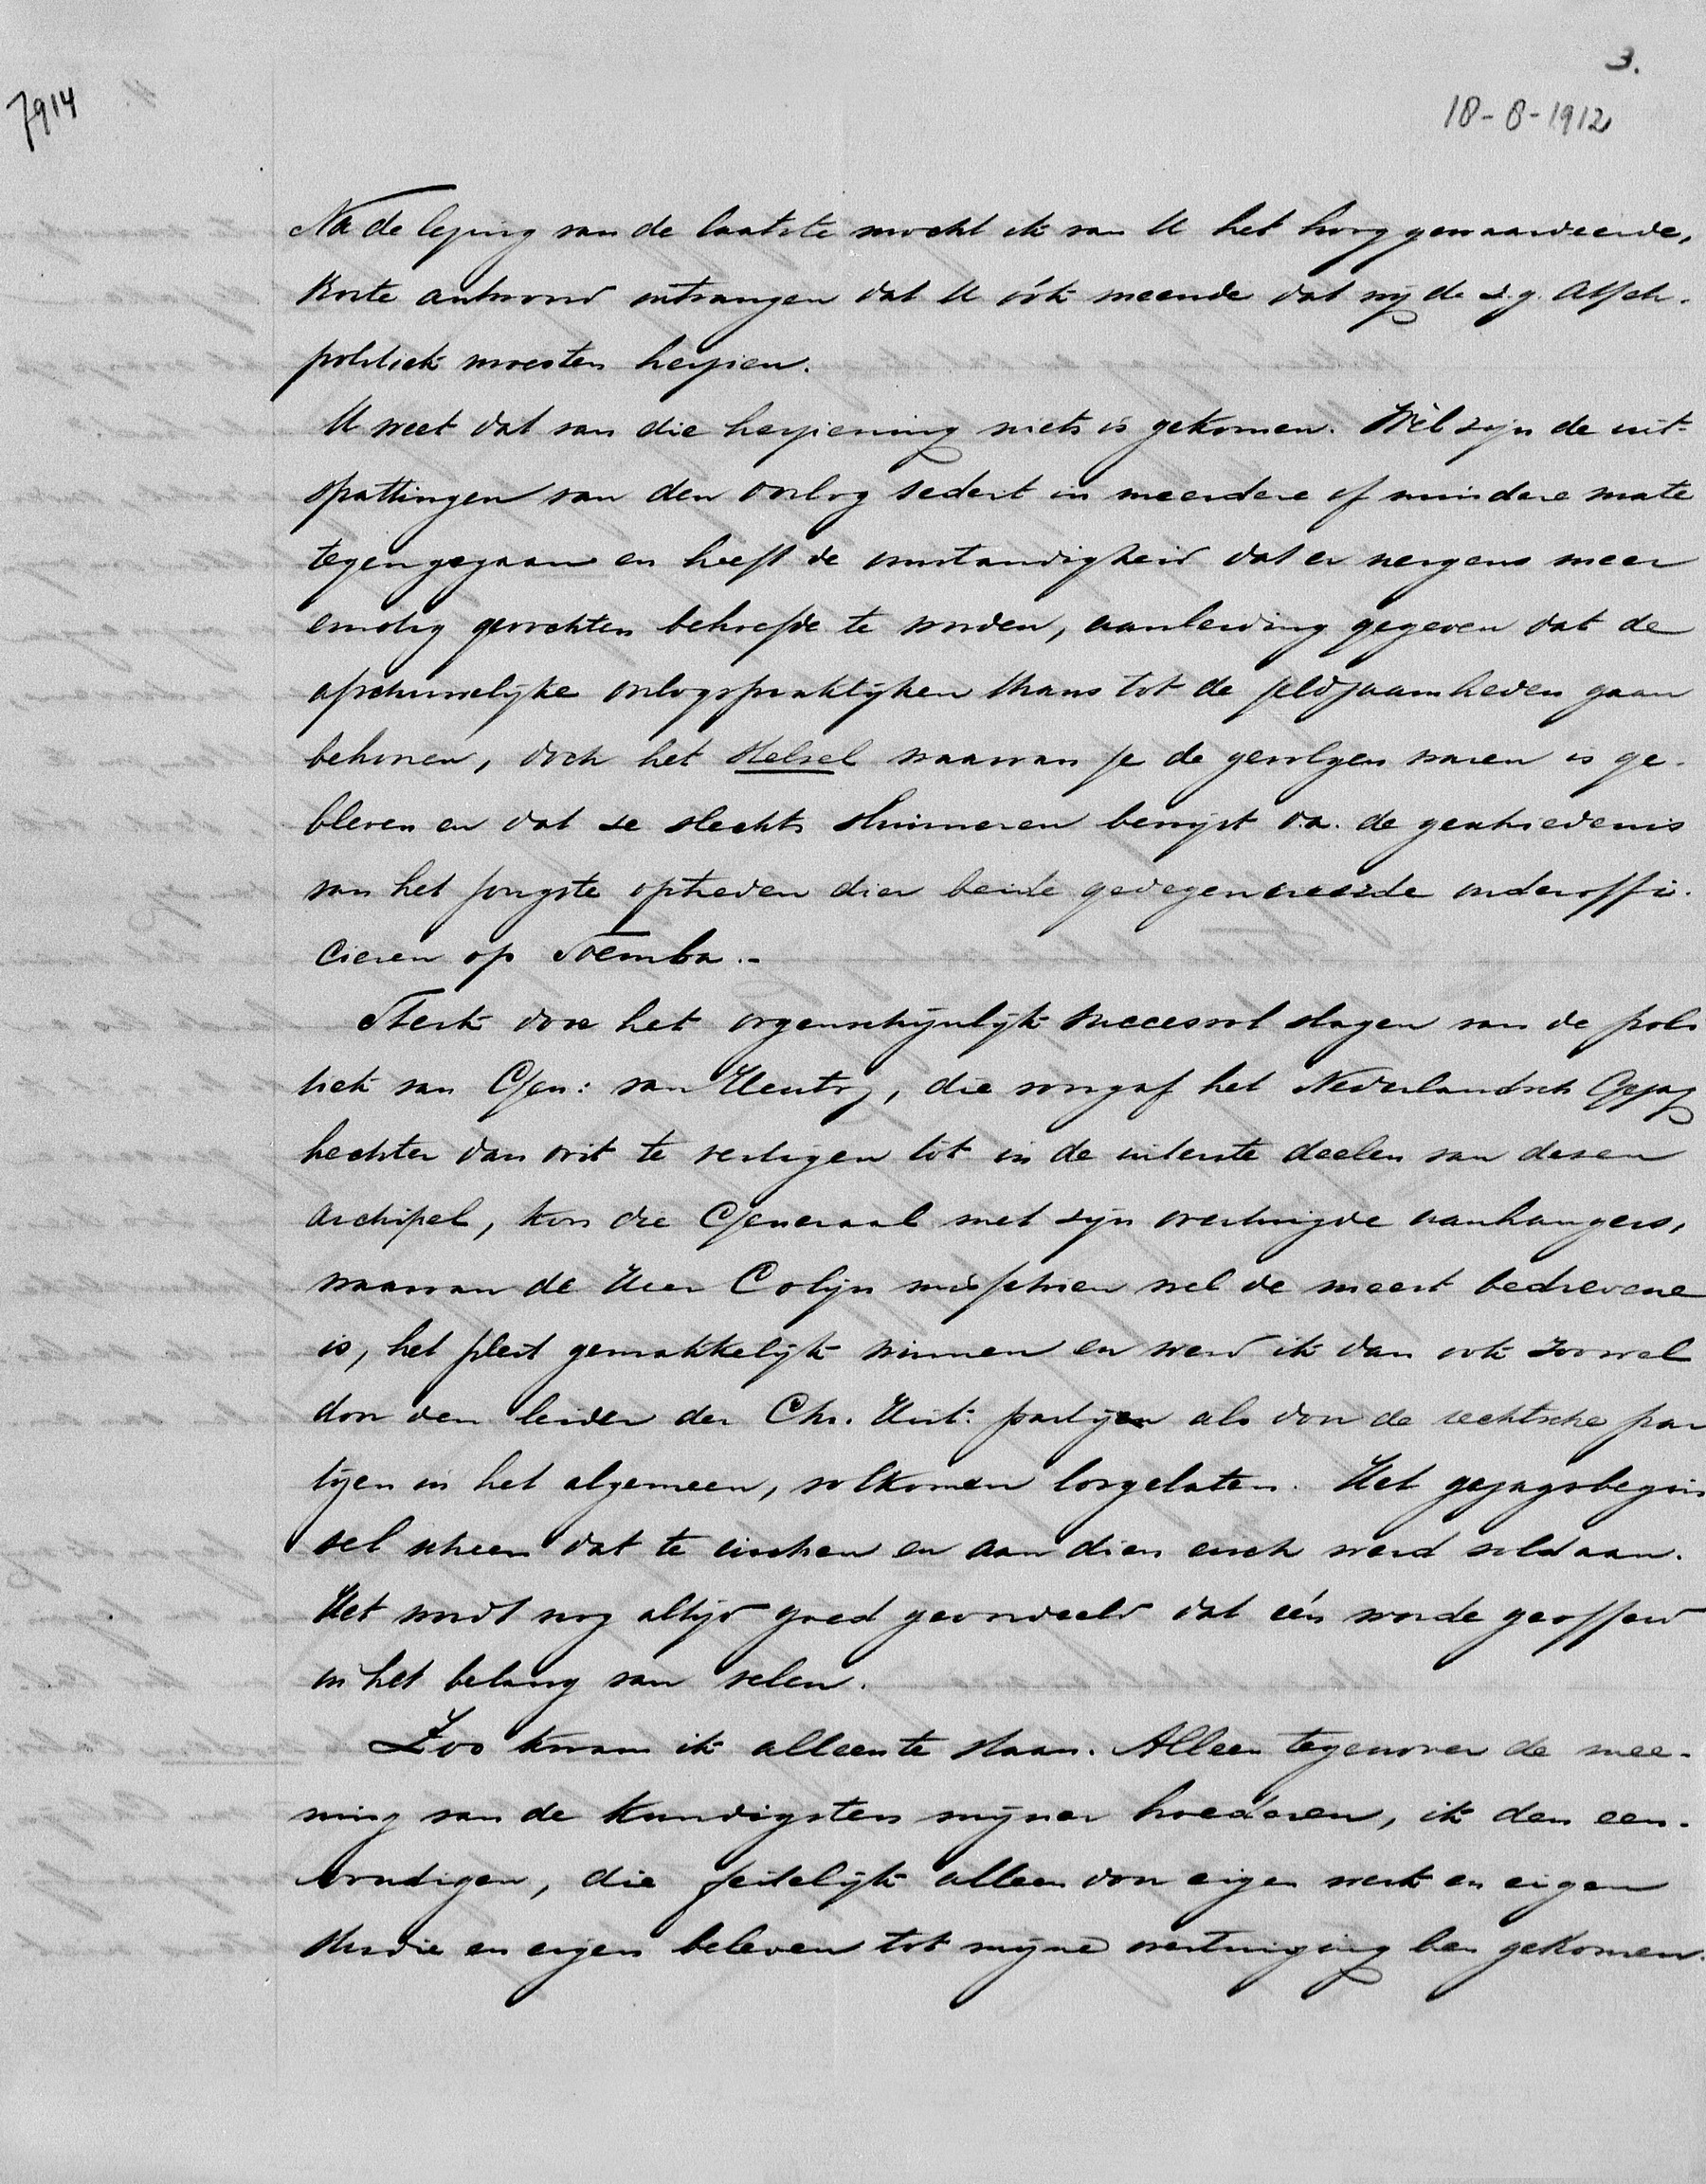 3.
7914
18-8-1912
Na de lezing van de laatste mocht ik van U het hooggewaardeerde,
korte antwoord ontvangen dat U óók meende dat wij de z.g. Atjeh-
politiek moesten herzien.
U weet dat van die herziening niets is gekomen. Wèl zijn de uit-
spattingen van den oorlog sedert in meerdere of mindere mate
tegengegaan en heeft de omstandigheid dat er nergens meer
ernstig gevochten behoefde te worden, aanleiding gegeven dat de
afschuwelijke oorlogspraktijken thans tot de zeldzaamheden gaan
behooren, doch het stelsel waarvan ze de gevolgen waren is ge-
bleven en dat ze slechts sluimeren bewijst o.a. de geschiedenis
van het jongste optreden dier beide gedegenereerde onderoffi-
cieren op Soemba.-
Sterk door het oogenschijnlijk succesvol slagen van de poli
tiek van Gen: van Heutsz, die voorgaf het Nederlandsch Gezag
hechter dan ooit te vestigen tot in de uiterste deelen van dezen
Archipel, kon die Generaal met zijn overtuigde aanhangers,
waarvan de Heer Colijn misschien wel de meest bedrevene
is, het pleit gemakkelijk winnen en werd ik dan ook zoowel
door den leider der Chr. Hist: partijen als door de rechtsche par
tijen in het algemeen, volkomen losgelaten. Het gezagsbegin
sel scheen dat te eischen en aan dien eisch werd voldaan.
Het wordt nog altijd goed geoordeeld dat één worde geofferd
in het belang van velen.
Zoo kwam ik alleen te staan. Alleen tegenover de mee-
ning van de kundigsten mijner broederen, ik den een-
voudigen, die feitelijk alleen door eigen werk en eigen
studie en eigen beleven tot mijne overtuiging ben gekomen.